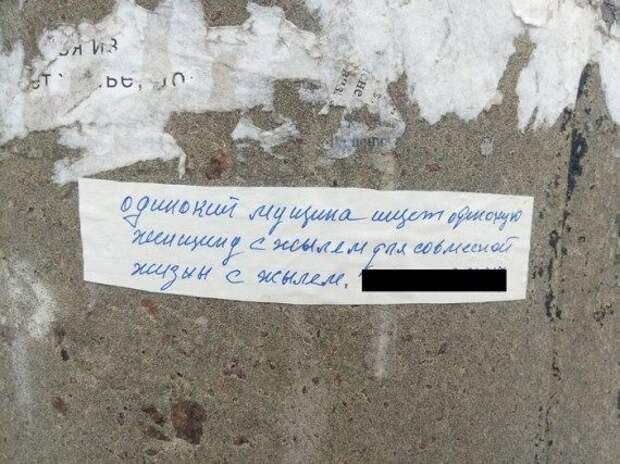 ся из
одинокий мущина ищет одинокую
женщину с жылем для совмесной
жизын с жылем.